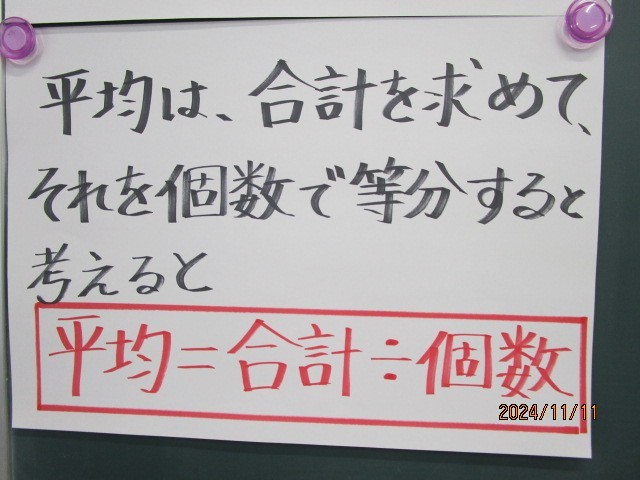 平均は、合計を求めて、
それを個数で等分すると
考えると
平均=合計÷個数
2024/11/11